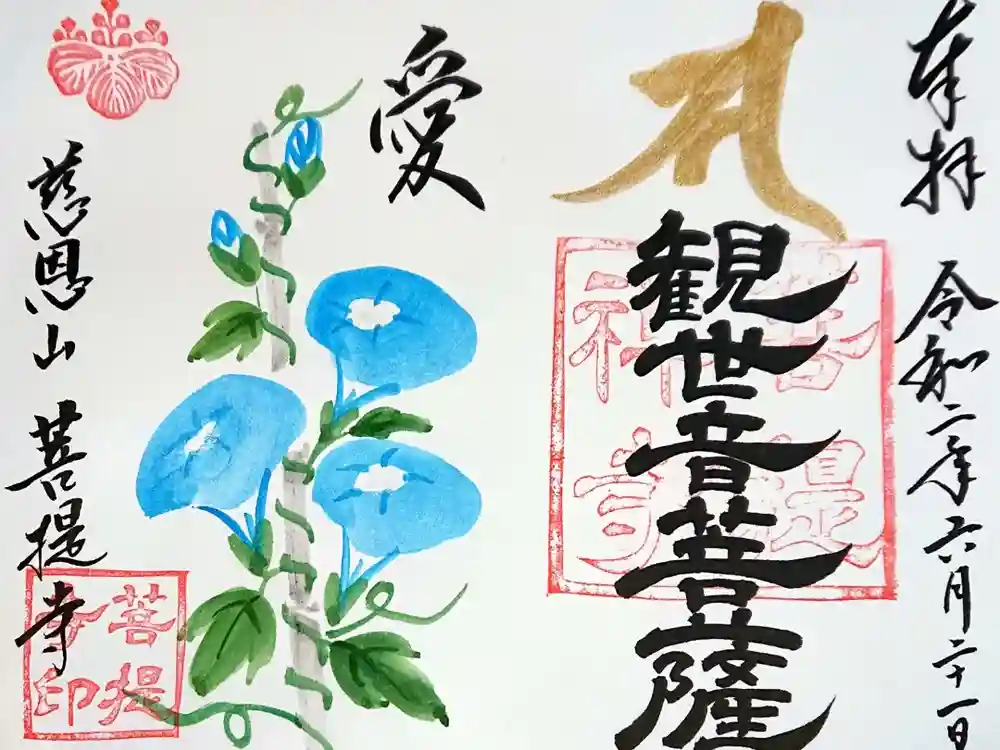 奉拝
令和二年六月二十一日
観世音菩薩
愛
慈恩山 菩提寺
菩提
寺印